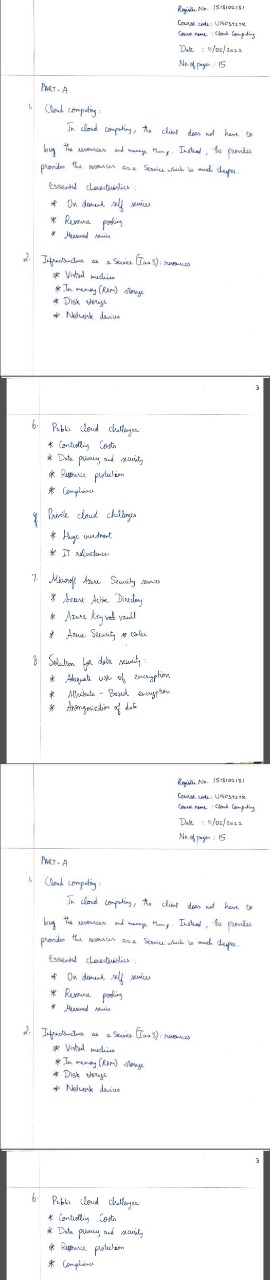 Register No. 1518102131
Course code: U18CST27R
Course name: Cloud Computing
Date : 11/02/2022
No. of pages : 15
PART-A
1. Cloud computing:
In cloud computing, the client does not have to
buy the resources and manage them. Instead, the provider
provides the resources as a Service which is much cheaper.
Essential characteristics:
* On demand self services
* Resource pooling
* Measured service
2. Infrastructure as a Service (IaaS): resources
* Virtual machines
* In memory (RAM) storage
* Disk storage
* Network devices
3
6. Public cloud challenges
* Controlling Costs
* Data privacy and security
* Resource protection
* Compliance
Private cloud challenges
* Huge investment
* IT reluctance
7. Microsoft Azure Security services
* Azure Active Directory
* Azure Key vault
* Azure Security center
8. Solution for data security:
* Adequate use of encryption
* Attribute - Based encryption
* Anonymization of data
Register No. 1518102131
Course code: U18CST27R
Course name: Cloud Computing
Date : 11/02/2022
No. of pages : 15
PART-A
1. Cloud computing:
In cloud computing, the client does not have to
buy the resources and manage them. Instead, the provider
provides the resources as a Service which is much cheaper.
Essential characteristics:
* On demand self services
* Resource pooling
* Measured service
2. Infrastructure as a Service (IaaS): resources
* Virtual machines
* In memory (RAM) storage
* Disk storage
* Network devices
3
6. Public cloud challenges
* Controlling Costs
* Data privacy and security
* Resource protection
* Compliance